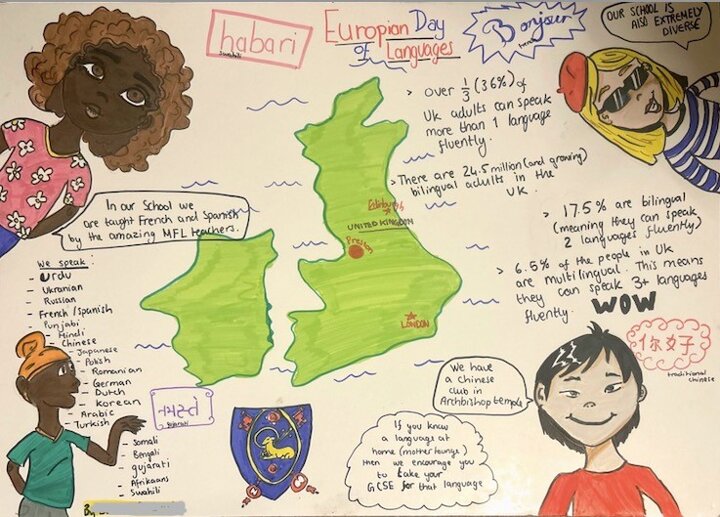 habari
Swahili
Europian Day
of Languages
Bonjour
french
OUR SCHOOL IS
ALSO EXTREMELY
DIVERSE
> over 1/3 (36%) of
UK adults can speak
more than 1 language
fluently.
> There are 24.5 million (and growing)
bilingual adults in the
UK.
> 17.5% are bilingual
(meaning they can speak
2 languages fluently)
> 6.5% of the people in UK
are multilingual. This means
they can speak 3+ languages
fluently.
WOW
In our School we
are taught French and Spanish
by the amazing MFL teachers.
Edinburgh
UNITED KINGDOM
Preston
LONDON
We speak:
- Urdu
- Ukranian
- Russian
- French/Spanish
- Punjabi
- Hindi
- Chinese
- Japanese
- Polish
- Romanian
- German
- Dutch
- Korean
- Arabic
- Turkish
- Somali
- Bengali
- gujarati
- Afrikaans
- Swahili
નમસ્તે
gujarati
We have
a chinese
club in
Archbishop temple
你好
traditional
chinese
If you know
a language at
home (mother tounge)
then we encourage you
to take your
GCSE for that language
By